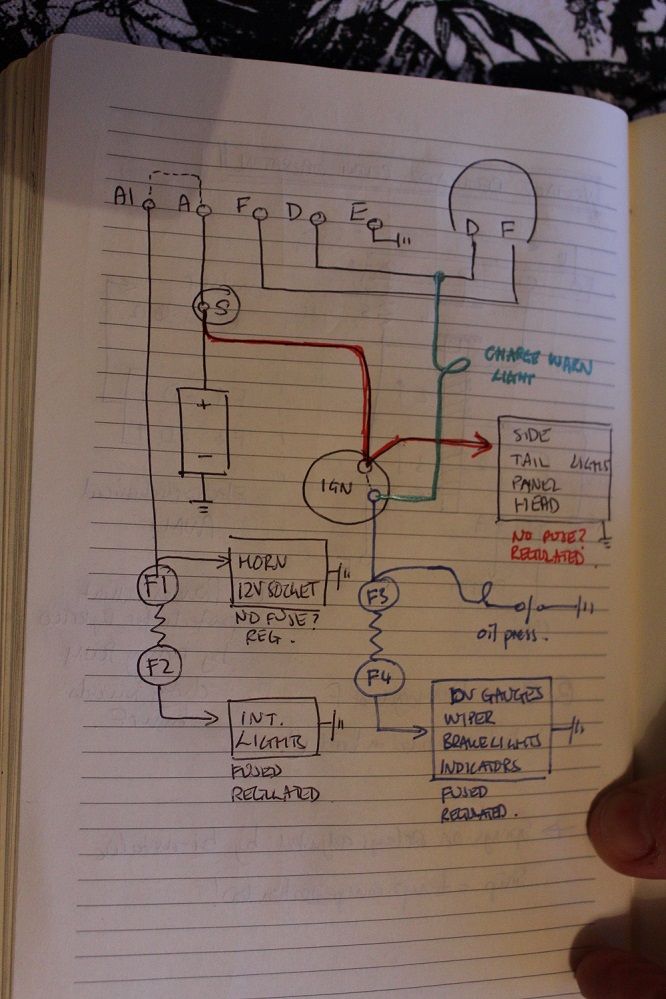 A1 A F D E
D F
S
CHARGE WARN
LIGHT
+
-
IGN
SIDE
TAIL LIGHTS
PANEL
HEAD
NO FUSE?
REGULATED.
HORN
12V SOCKET
NO FUSE?
REG.
F1
F3
oil press.
F2
F4
INT.
LIGHTS
FUSED
REGULATED
10V GAUGES
WIPER
BRAKELIGHTS
INDICATORS
FUSED
REGULATED.